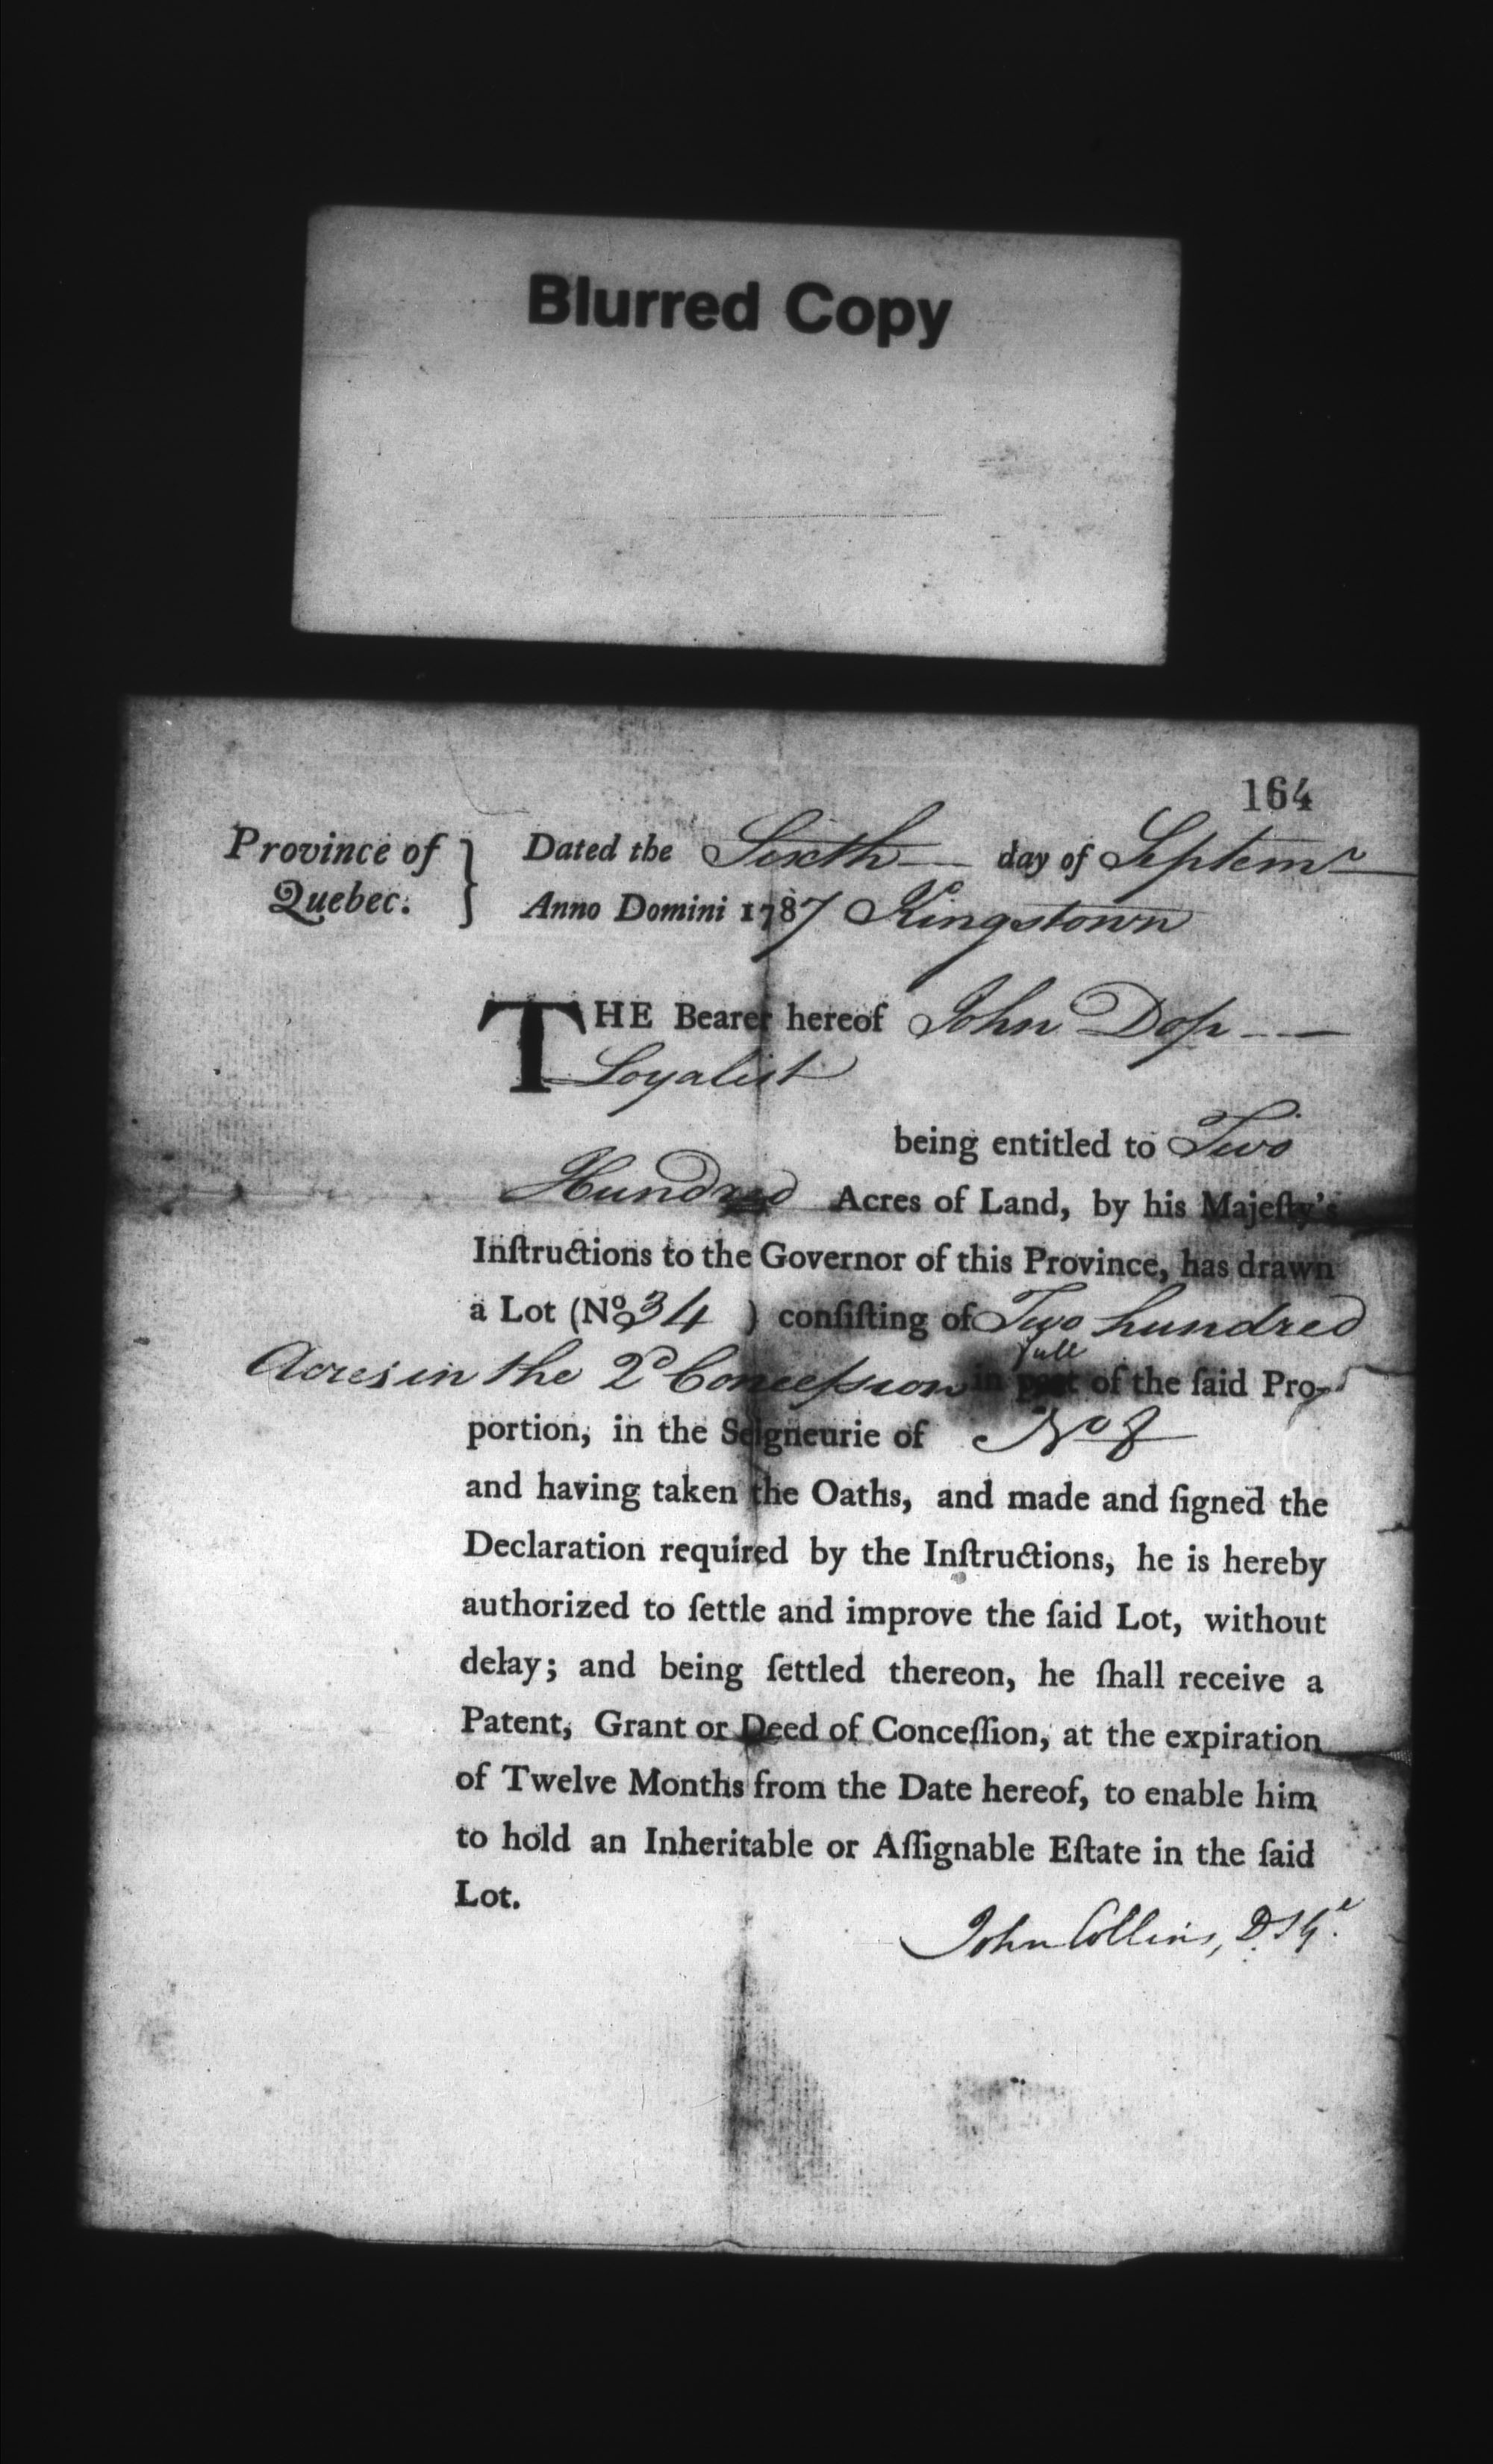 Blurred Copy
164
Province of } Dated the Sixth — day of Septemr
Quebec. Anno Domini 1787 Kingstown
THE Bearer hereof John Dop ---
Loyalist
being entitled to Two
Hundred Acres of Land, by his Majeſty's
Inſtructions to the Governor of this Province, has drawn
a Lot (No 34 ) conſiſting of Two hundred
full
Acres in the 2d Conceſsion in part of the ſaid Pro-
portion, in the Seigneurie of No 8
and having taken the Oaths, and made and ſigned the
Declaration required by the Inſtructions, he is hereby
authorized to ſettle and improve the ſaid Lot, without
delay; and being ſettled thereon, he ſhall receive a
Patent, Grant or Deed of Conceſſion, at the expiration
of Twelve Months from the Date hereof, to enable him
to hold an Inheritable or Aſſignable Eſtate in the ſaid
Lot.
John Collins, D.S.Gl.